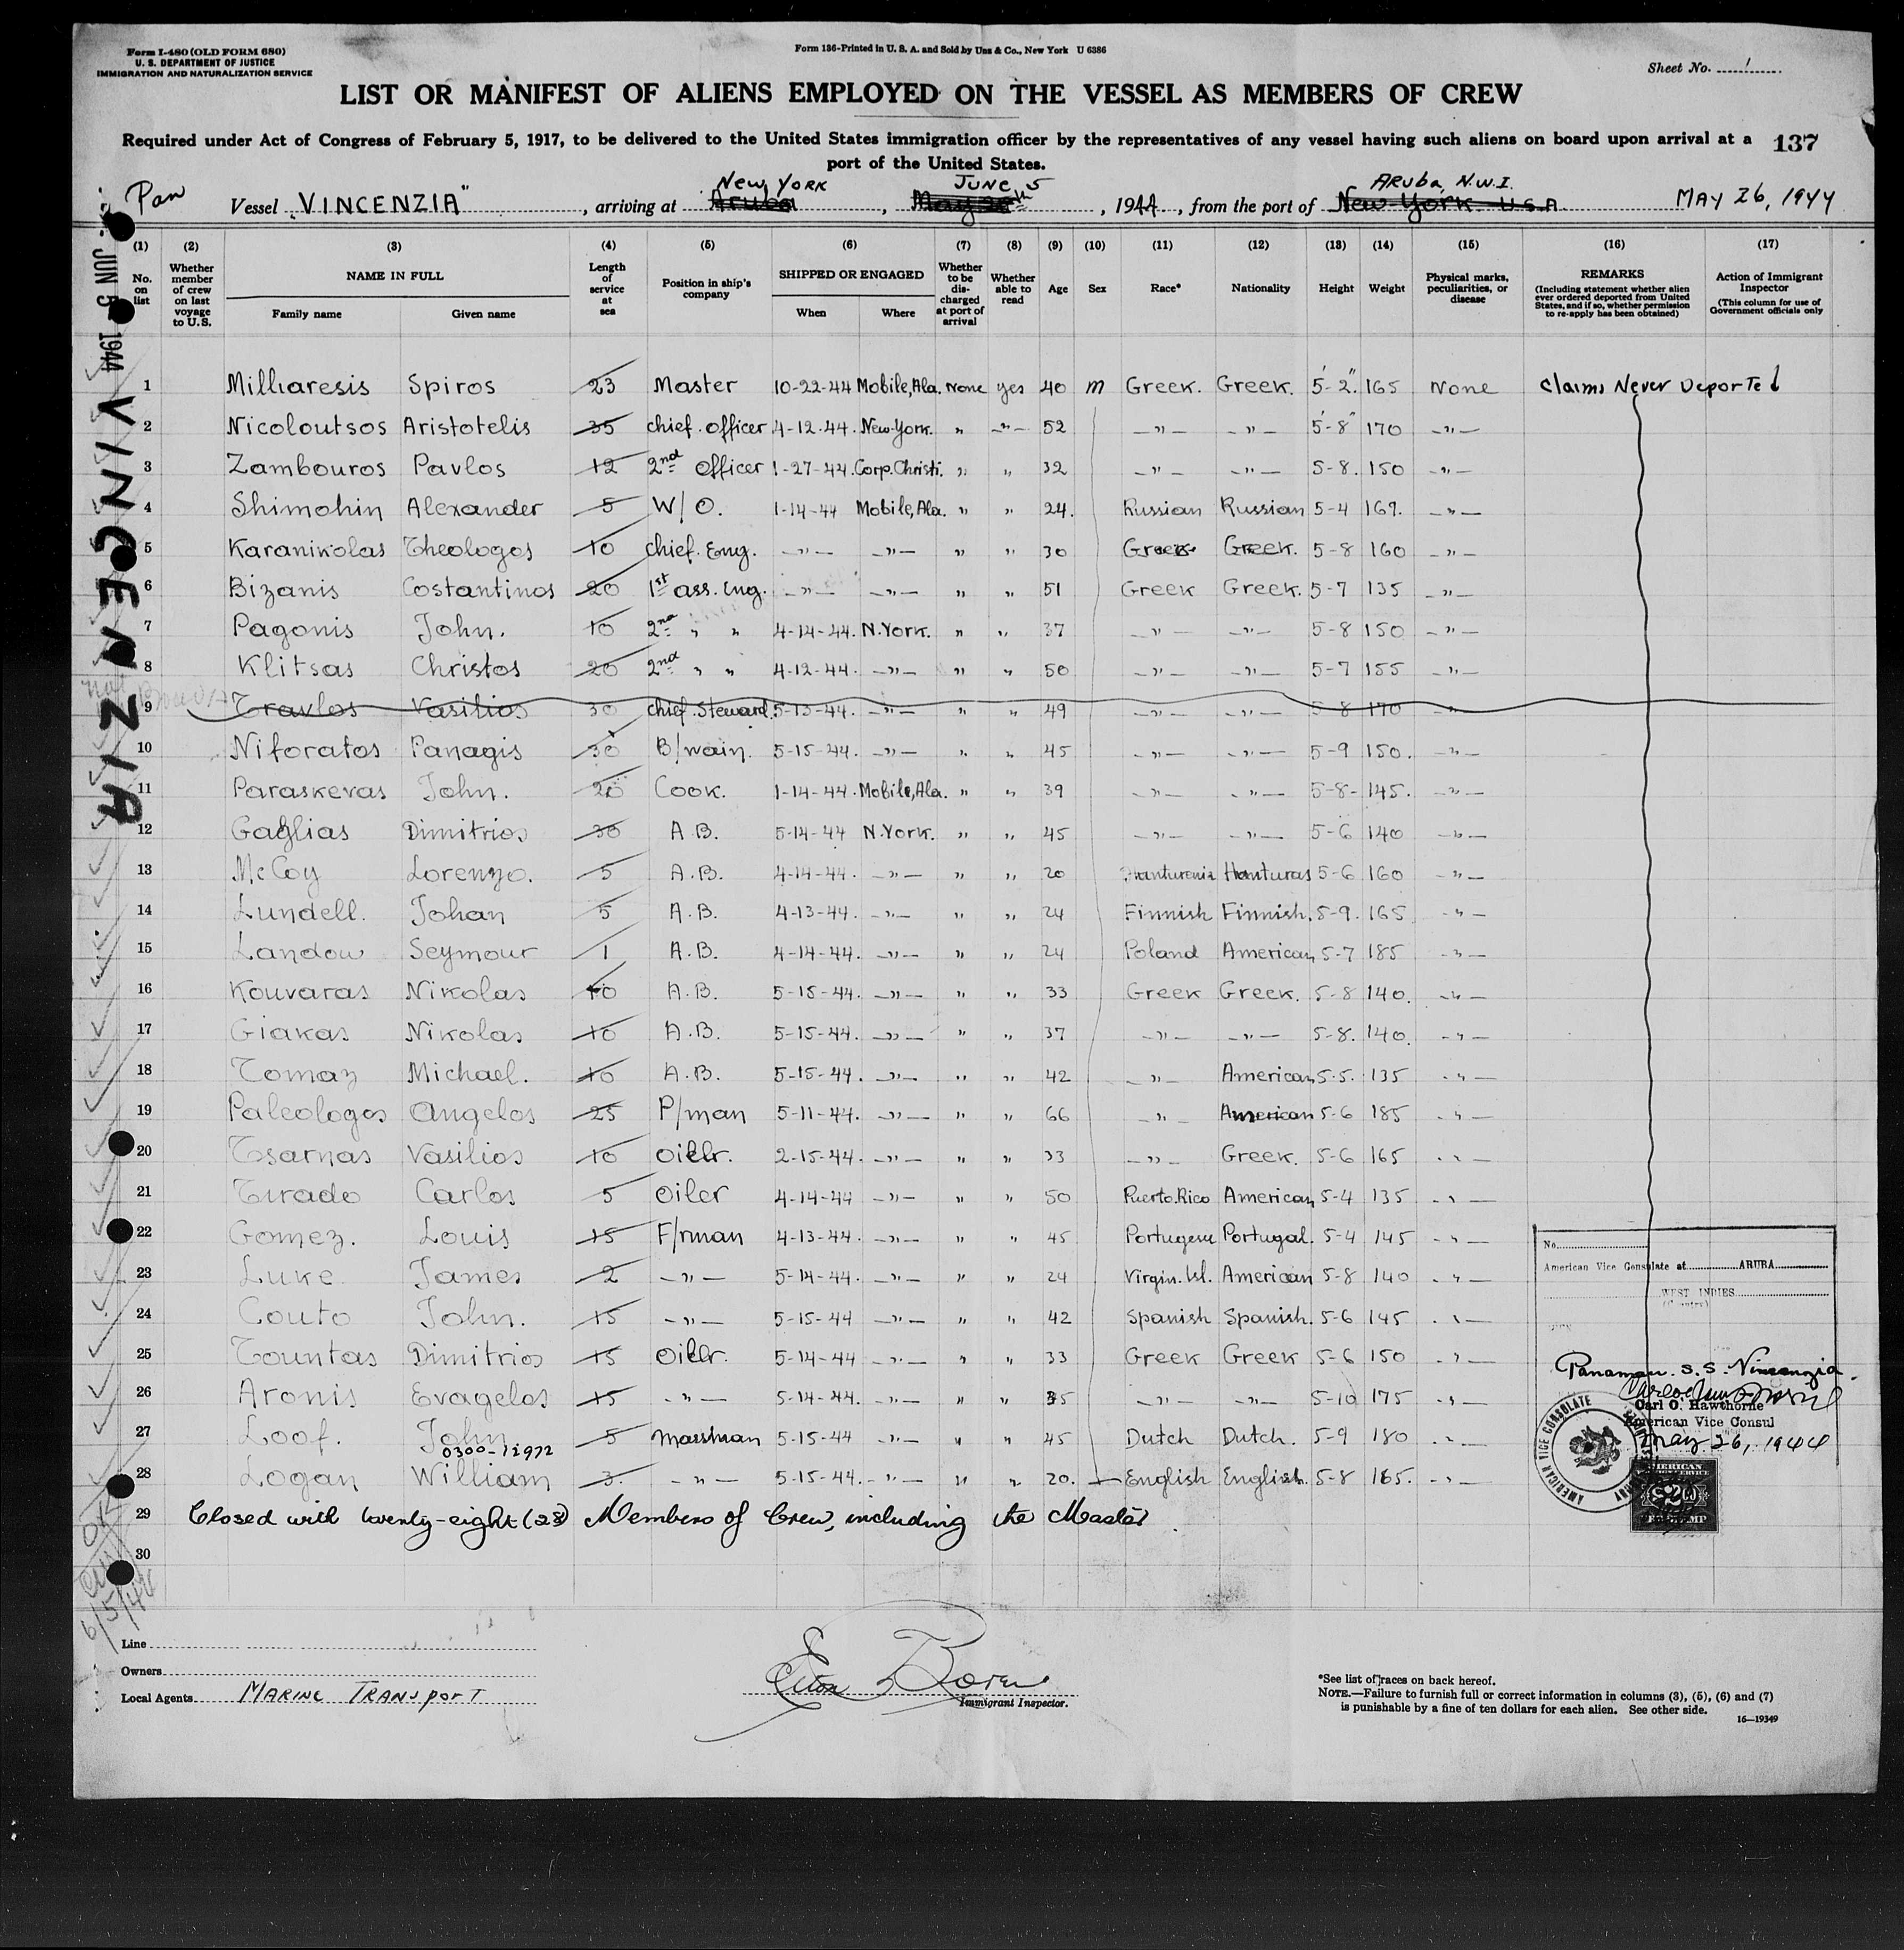 Form I-480 (OLD FORM 680)
U. S. DEPARTMENT OF JUSTICE
IMMIGRATION AND NATURALIZATION SERVICE
Form 136-Printed in U. S. A. and Sold by Unz & Co., New York U 6386
Sheet No. 1
LIST OR MANIFEST OF ALIENS EMPLOYED ON THE VESSEL AS MEMBERS OF CREW
Required under Act of Congress of February 5, 1917, to be delivered to the United States immigration officer by the representatives of any vessel having such aliens on board upon arrival at a 137
port of the United States.
Pan Vessel "VINCENZIA", arriving at Aruba New York, JUNE 5th, 1944, from the port of New York U.S.A. Aruba, N.W.I. MAY 26, 1944
JUN 5 1944 VINCENZIA
(1) (2) (3) (4) (5) (6) (7) (8) (9) (10) (11) (12) (13) (14) (15) (16) (17)
No. on list
Whether member of crew on last voyage to U.S.
NAME IN FULL
Family name Given name
Length of service at sea
Position in ship's company
SHIPPED OR ENGAGED
When Where
Whether to be discharged at port of arrival
Whether able to read
Age
Sex
Race*
Nationality
Height
Weight
Physical marks, peculiarities, or disease
REMARKS
(Including statement whether alien ever ordered deported from United States, and if so, whether permission to re-apply has been obtained)
Action of Immigrant Inspector
(This column for use of Government officials only
1 Milliaresis Spiros 23 Master 10-22-44 Mobile, Ala. None yes 40 m Greek. Greek. 5'-2" 165 None Claims Never Deported
2 Nicoloutsos Aristotelis 35 chief officer 4-12-44. New-York. " -"- 52 -"- -"- 5'-8" 170 -"-
3 Zambouros Pavlos 12 2nd Officer 1-27-44. Corp. Christi. " " 32 -"- -"- 5-8. 150 -"-
4 Shimohin Alexander 5 W/O. 1-14-44 Mobile, Ala. " " 24. Russian Russian 5-4 169. -"-
5 Karanikolas Theologos 10 chief. Eng. -"- -"- " " 30 Greek Greek. 5-8 160 -"-
6 Bizanis Costantinos 20 1st ass. Eng. -"- -"- " " 51 Greek Greek. 5-7 135 -"-
7 Pagonis John. 10 2nd " " 4-14-44. N.York. " " 37 -"- -"- 5-8 150 -"-
8 Klitsas Christos 20 2nd " " 4-12-44. -"- " " 50 -"- -"- 5-7 155 -"-
9 Travlos Vasilios 30 chief. Steward. 5-13-44. -"- " " 49 -"- -"- 5-8 170 -"-
10 Niforatos Panagis 30 B/wain. 5-15-44. -"- " " 45 -"- -"- 5-9 150. -"-
11 Paraskevas John. 20 Cook. 1-14-44. Mobile, Ala. " " 39 -"- -"- 5-8- 145. -"-
12 Gaglias Dimitrios 30 A.B. 5-14-44 N.York. " " 45 -"- -"- 5-6 140 -"-
13 McCoy Lorenzo. 5 A.B. 4-14-44. -"- " " 20 Hanturas 5-6 160 -"-
14 Lundell. Johan 5 A.B. 4-13-44. -"- " " 24 Finnish Finnish. 5-9. 165 -"-
15 Landow Seymour 1 A.B. 4-14-44. -"- " " 24 Poland American 5-7 185 -"-
16 Kouvaras Nikolas 10 A.B. 5-15-44. -"- " " 33 Greek Greek. 5-8 140. -"-
17 Giakas Nikolas 10 A.B. 5-15-44. -"- " " 37 -"- -"- 5-8. 140. -"-
18 Tomaz Michael. 10 A.B. 5-15-44. -"- " " 42 -"- American 5-5. 135 -"-
19 Paleologos Angelos 25 P/man 5-11-44. -"- " " 66 -"- American 5-6 185 -"-
20 Tsarnas Vasilios 10 Oiler. 2-15-44. -"- " " 33 -"- Greek. 5-6 165 -"-
21 Tirado Carlos 5 Oiler 4-14-44 -"- " " 50 Puerto.Rico American 5-4 135 -"-
22 Gomez. Louis 15 F/rman 4-13-44. -"- " " 45 Portugal. 5-4 145 -"-
23 Luke James 2 -"- 5-14-44. -"- " " 24 Virgin. Isl. American 5-8 140 -"-
24 Couto John. 15 -"- 5-15-44 -"- " " 42 Spanish Spanish. 5-6 145 -"-
25 Tountas Dimitrios 15 Oiler. 5-14-44 -"- " " 33 Greek Greek 5-6 150 -"-
26 Aronis Evagelos 15 -"- 5-14-44. -"- " " 35 -"- -"- 5-10 175 -"-
27 Loof. John 5 Messman 5-15-44 -"- " " 45 Dutch Dutch. 5-9 180 -"-
0300-12972
28 Logan William 3. -"- 5-15-44. -"- " " 20. English English. 5-8 165. -"-
29 Closed with twenty-eight (28) Members of Crew, including the Master.
30
No.
American Vice Consulate at ARUBA
WEST INDIES
(Country)
Panaman. S.S. Vincenzia.
Carl O. Hawthorne
American Vice Consul
May 26, 1944
AMERICAN VICE CONSULATE
OK
6/5/44
Line
Owners
Local Agents MARINE TRANSPORT
Immigrant Inspector.
*See list of races on back hereof.
NOTE.—Failure to furnish full or correct information in columns (3), (5), (6) and (7)
is punishable by a fine of ten dollars for each alien. See other side.
16—19349